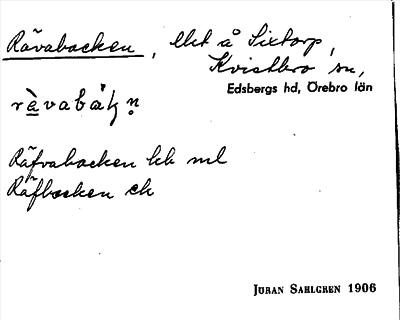 Rävabacken, lht å Sixtorp,
Kvistbro sn,
Edsbergs hd, Örebro län
rävabakn
Räfvabacken hk ml
Räfbacken ek
JÖRAN SAHLGREN 1906